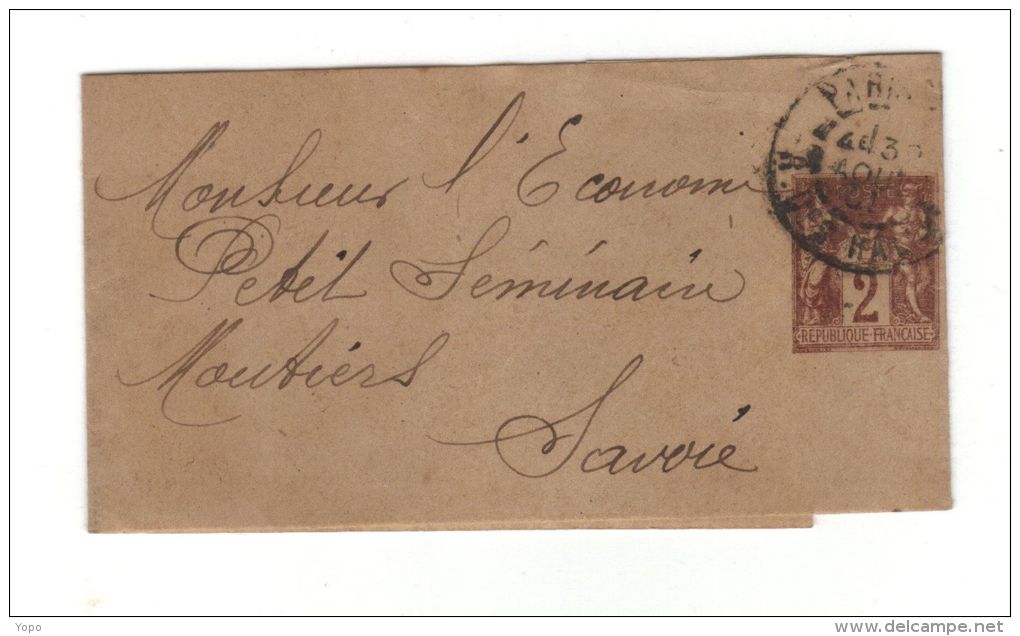 Monsieur l'Econome
Petit Séminaire
Moutiers
Savoie
PARIS
AOUT
2
REPUBLIQUE FRANCAISE
Yopo
www.delcampe.net